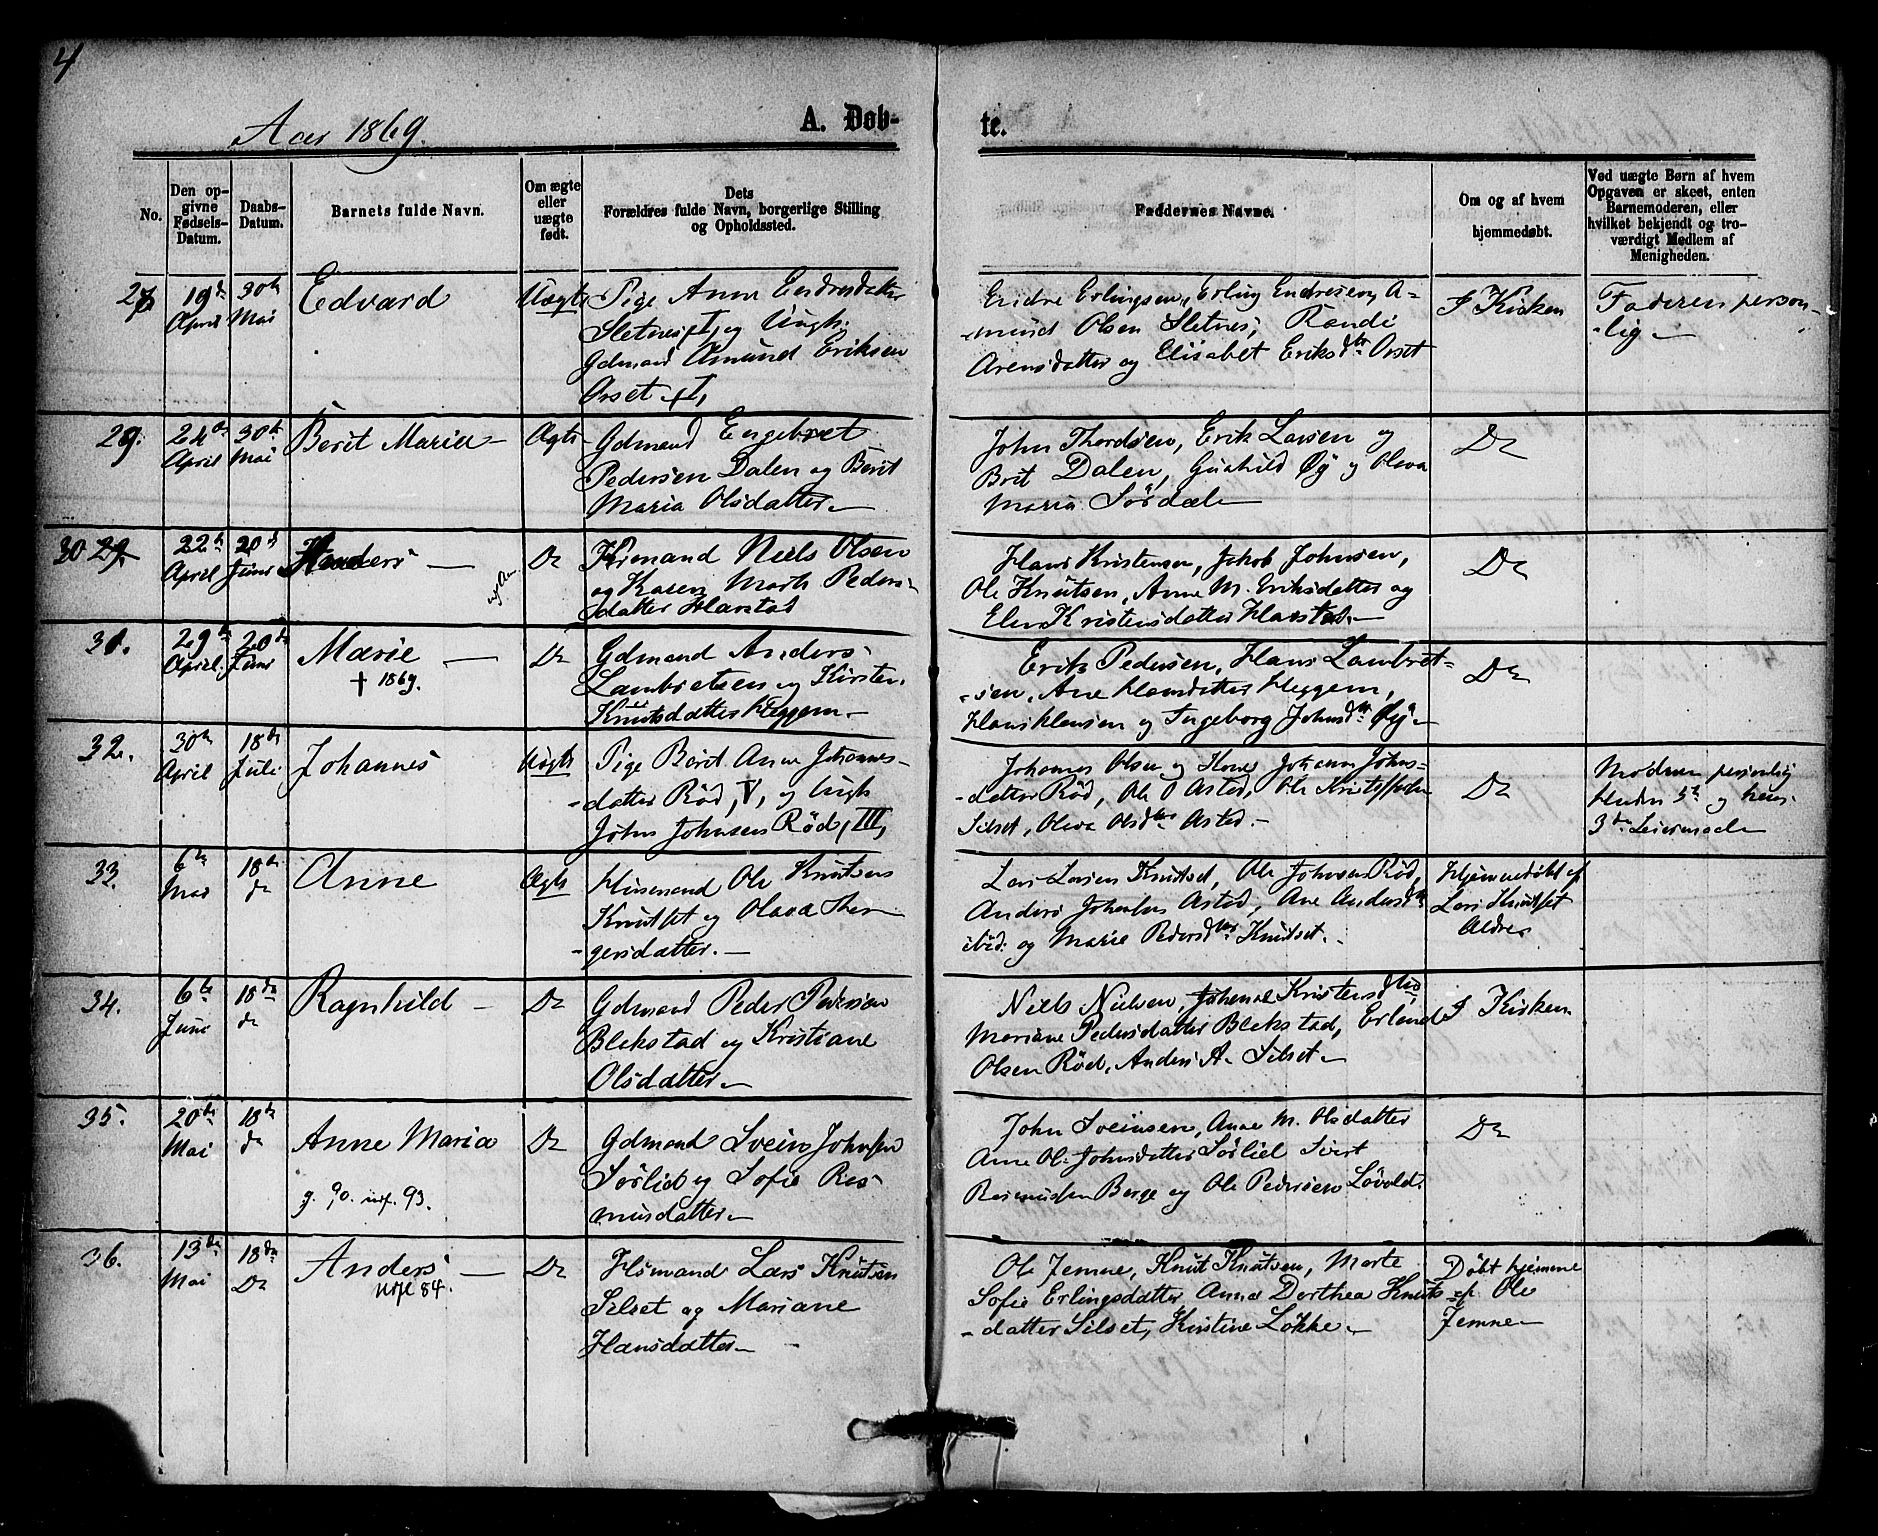 4
Aar 1869.
A. Døb-
te.
No.
Den op-
givne
Fødsels-
Datum.
Daabs-
Datum.
Barnets fulde Navn.
Om ægte
eller
uægte
født.
Dets
Forældres fulde Navn, borgerlige Stilling
og Opholdssted.
Faddernes Navne.
Om og af hvem
hjemmedøbt.
Ved uægte Børn af hvem
Opgaven er skeet, enten
Barnemoderen, eller
hvilket bekjendt og tro-
værdigt Medlem af
Menigheden.
19de
April
30te
Mai
Edvard
Uægte
Pige Anne Endresdatter
Sletnes, I, og Ungk.
Gdmand Amund Eriksen
Orset, I,
Endre Erlingsen, Erling Endresen, A-
-mund Olsen Sletnes, Randi
Arensdatter og Elisabet Eriksdtr Orset
I Kirken
Faderen person-
-lig -
29.
24de
April
30te
Mai
Berit Maria -
Ægte
Gdmand Engebret
Pedersen Dalen og Berit
Maria Olsdatter -
John Thordsen, Erik Larsen og
Brit Dalen, Gunhild Øy og Olava
Maria Sørdal -
Do
30 29.
22de
April
20de
Juni
Do
Niels Olsen
og Karen Marth Peders-
datter Harstad
Hans Kristensen, Jakob Johnsen,
Ole Knutsen, Anne M. Eriksdatter og
Elen Kristensdatter Harstad. -
Do
31.
29de
April.
20de
Juni
Marie -
† 1869.
Do
Gdmand Anders
Lambretsen og Kirsten
Knutsdatter Heggem. -
Erik Pedersen, Hans Lambret-
-sen, Ane Hansdatter Heggem,
Hans Hansen og Ingeborg Johnsdtr Øy -
Do
32.
30te
April
18de
Juli
Johannes
Uægte
Pige Berit Anne Johannes-
-datter Rød, V, og Ungk
John Johnsen Rød, III,
Johannes Olsen og Kone Johanna Johns-
-datter Rød, Ole O Astad, Ole Kristoffersen
Silset, Olava Olsdtr Astad. -
Do
Moderen personlig
Hendes 5te og hans
3die Leiermaal
33.
6te
Mai
18de
do
Anne
Ægte
Husmand Ole Knutsen
Knutset og Olava Thor-
-gersdatter. -
Lars Larsen Knutset, Ole Johnsen Rød,
Anders Johansen Astad, Ane Andersdtr
ibid: og Marie Pedersdtr Knutset. -
Hjemmedøbt af
Lars Knutset
Ældre
34.
6te
Juni
18de
do
Ragnhild -
Do
Gdmand Peder Pedersen
Blekstad og Kristiane
Olsdatter. -
Niels Nielsen, Johanne Kristensdtr,
Mariane Pedersdatter Blekstad, Erland
Olsen Rød, Anders A. Silset. -
I Kirken
35.
20de
Mai
18de
do
Anne Maria
g. 90. utfl. 93.
Do
Gdmand Svein Johnsen
Sørlid og Sofie Ras-
musdatter. -
John Sveinsen, Anne M. Olsdatter
Ane Ol. Johnsdatter Sørlid Sivert
Rasmussen Berge og Ole Pedersen Løvold.
Do
36.
13de
Mai
18de
Do
Anders -
utfl. 84.
Do
Husmand Lars Knutsen
Silset og Mariane
Hansdatter. -
Ole Jemne, Knut Knutsen, Marte
Sofie Erlingsdatter Anna Dorthea Knuts-
-datter Silset, Kristine Løkke. -
Døbt hjemme
af Ole
Jemne -